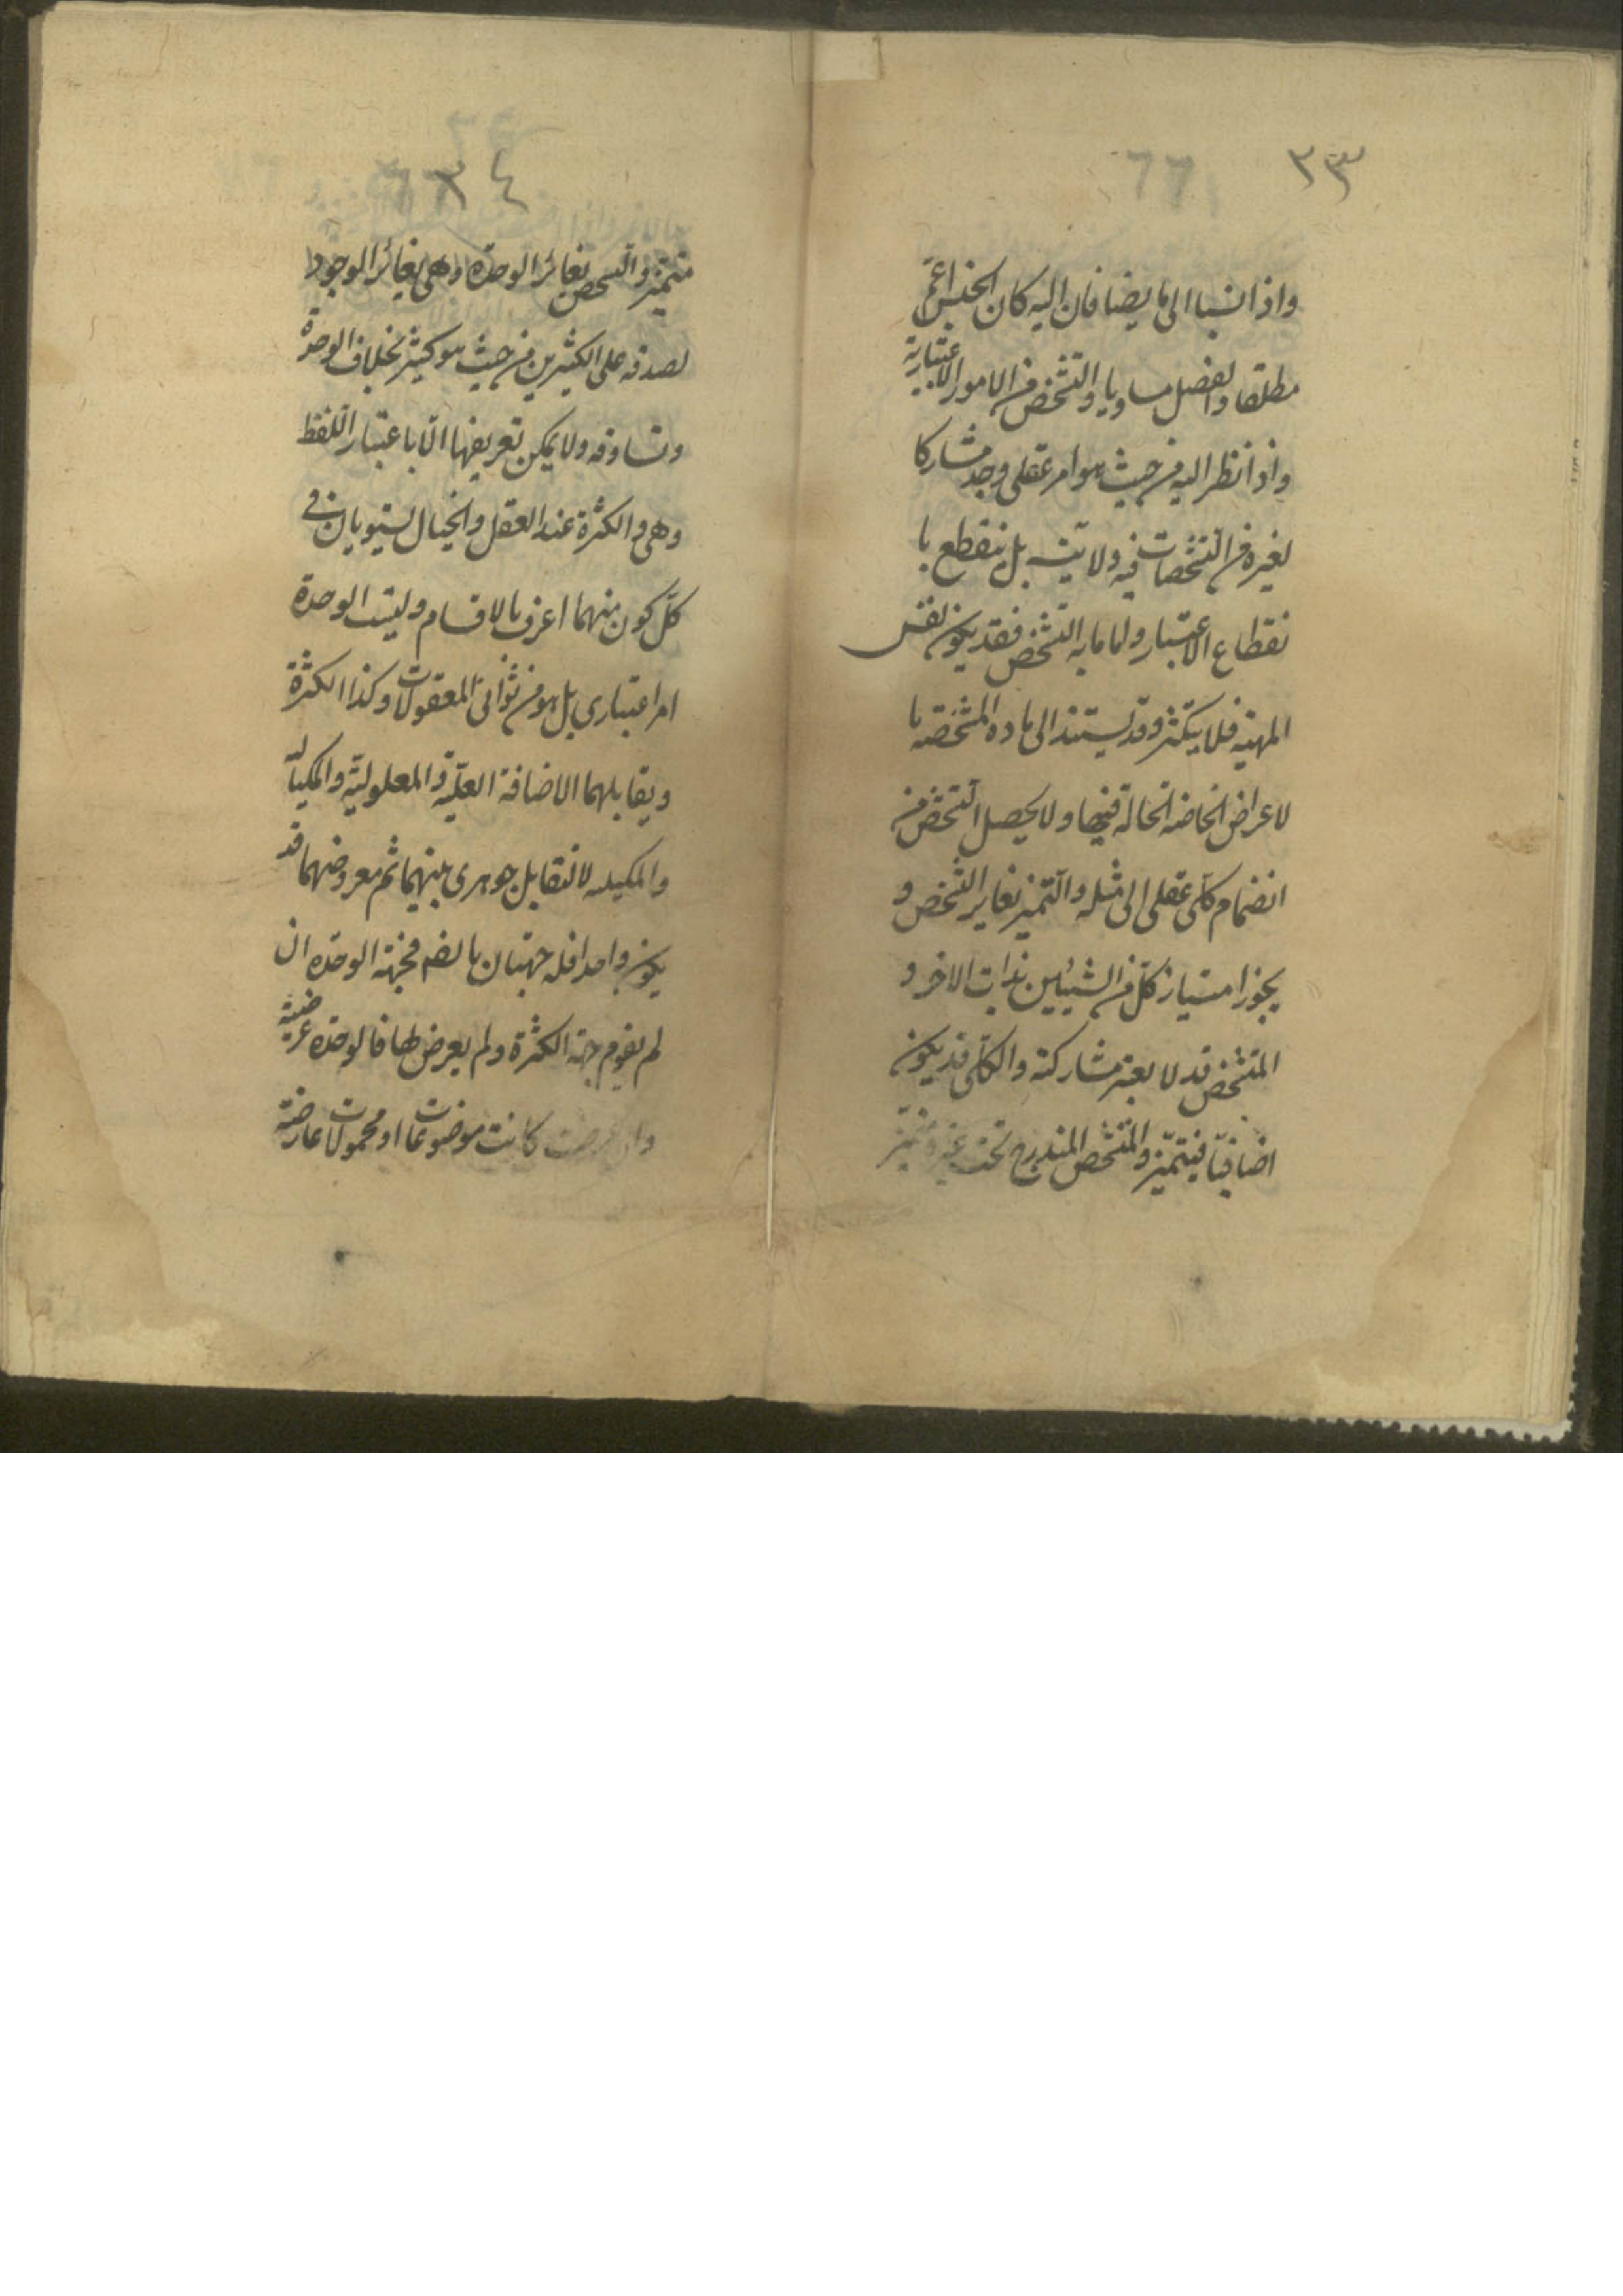 ٣٣
77
واذا نسبا الى ما يضافان اليه كان الجنس اعمّ
مطلقا والفصل مساويا والتشخص من الامور الاعتبارية
واذا نظر اليه من حيث هو امر عقلى وجد مشاركا
لغيره من التشخصات فيه ولا يتسـ بل ينقطع با
نقطاع الاعتبار واما ما به التشخص فقد يكون نفس
المهية فلا يتكثر وقد يستند الى ماده المتشخصه با
لاعراض الخاصه الحالة فيها ولا يحصل التشخص من
انضمام كلى عقلى الى مثله والتميز تغاير التشخص و
يجوز امتياز كل من الشيئين بذات الاخر و
المتشخص قد لا يعتبر مشاركته والكلى قد يكون
اضافيا فيتميز والمتشخص المندرج تحت غيره متميز
٣٤
متميز والتشخص يغائر الوحدة وهى يغائر الوجود
لصدقه على الكثيرين من حيث هو كثير بخلاف الوحدة
وتساوقه ولا يمكن تعريفها الّا باعتبار اللفظ
وهى والكثرة عند العقل والخيال يستويان فى
كلّ كون منهما اعرف بالاقسام وليست الوحدة
امرا عتبارى بل هو من ثوانى المعقولات وكذا الكثرة
ويقابلهما الاضافة العلّية والمعلولية والمكياليه
والمكيليه لا لتقابل جوهرى بينهما ثم معروضهما قد
يكون واحدا فله جهتان بالضـ فجهة الوحدة ان
لم يقوم جهة الكثرة ولم يعرض لها فالوحدة عرضية
وان عرضت كانت موضوعات او محمولات عارضة